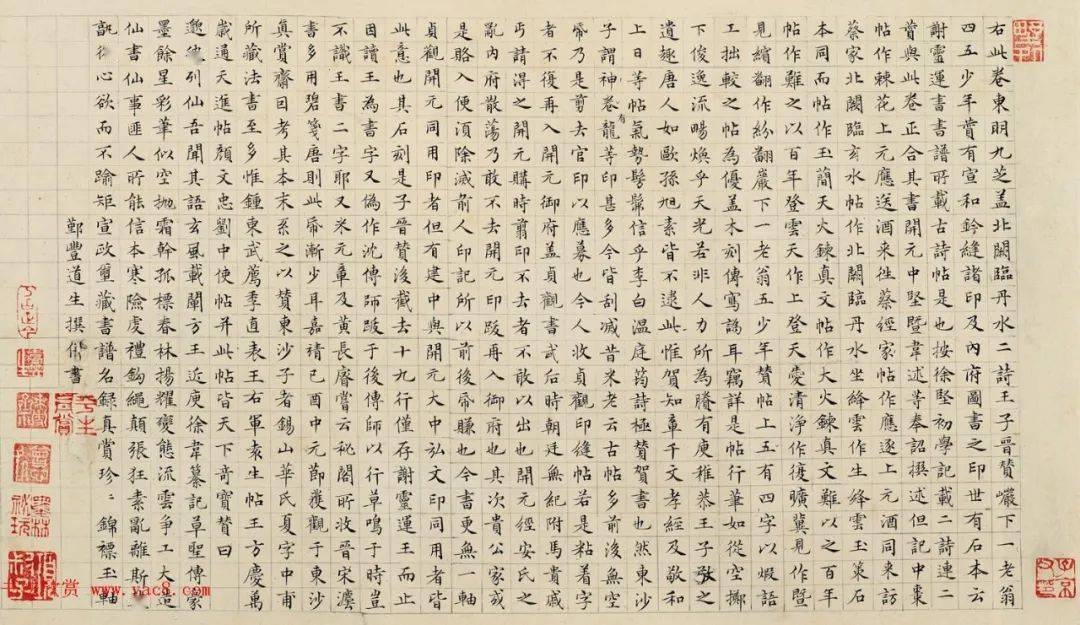 右此卷東明九芝蓋北闕臨丹水二詩王子晉贊巖下一老翁
四五少年賞有宣和鈐縫諸印及內府圖書之印世有石本云
謝靈運書書譜所載古詩帖是也按徐堅初學記載二詩連二
賛與此卷正合其書開元中堅暨韋述等奉詔撰述但記中棗
帖作棘花上元應送酒來徃蔡經家帖作應逐上元酒同來訪
蔡家北闕臨玄水帖作北闕臨丹水坐絳雲作生絳雲玉策石
本同而帖作玉簡天火鍊真文帖作大火鍊真文難以之百年
帖作難之以百年登雲天作上登天愛清淨作復曠兾見作暨
見繽翻作紛翻巖下一老翁五少年賛帖上五有四字以蝦語
工拙較之帖為優盖木刻傳寫譌耳竊詳是帖行筆如從空擲
下俊逸流暢煥乎天光若非人力所為騰有庾稚恭王子敬之
遺趣唐人如歐孫旭素皆不逮此惟賀知章千文孝經及敬和
上日等帖氣勢髣髴信乎李白溫庭筠詩極贊賀書也然東沙
子謂神卷有龍等印甚多今皆刮滅昔米老云古帖多前後無空
帋乃是剪去官印以應募也今人收貞觀印縫帖若是粘着字
者不復再入開元御府蓋貞觀書武后時朝廷無紀附馬貴戚
丐請得之開元購時剪印不去者不敢以出也開元經安氏之
亂內府散蕩乃敢不去開元印跋再入御府也其次貴公家或
是賂入便湏除滅前人印記所以前後帋賺也今書更無一軸
貞觀開元同用印者但有建中與開元大中弘文印同用者皆
此意也其石刻是子晉贊後截去十九行僅存謝靈運王而止
因讀王為書字又偽作沈傳師跋于後傳師以行草鳴于時豈
不識王書二字耶又米元章及黃長睿嘗云秘閣所收晉宋灋
書多用碧箋唐則此帋漸少耳嘉靖己酉中元節獲觀于東沙
真賞齋因考其本末系之以贊東沙子者錫山華氏夏字中甫
所藏法書至多惟鍾東武薦季直表王右軍袁生帖王方慶萬
歲通天進帖顏文忠劉中使帖并此帖皆天下奇寶贊曰
列仙吾聞其語玄風載闡方王近庾徐韋纂記草聖傳家
墨餘星彩筆似空抛霜幹孤標春林揚耀變態流雲爭工大造
仙書仙事匪人所能信本寒險虔禮鉤繩顛張狂素亂雜斯
從心欲而不踰矩宣政璽藏書譜名錄真賞珍〻錦褾玉軸
鄞豐道生撰併書
www.yac8.com